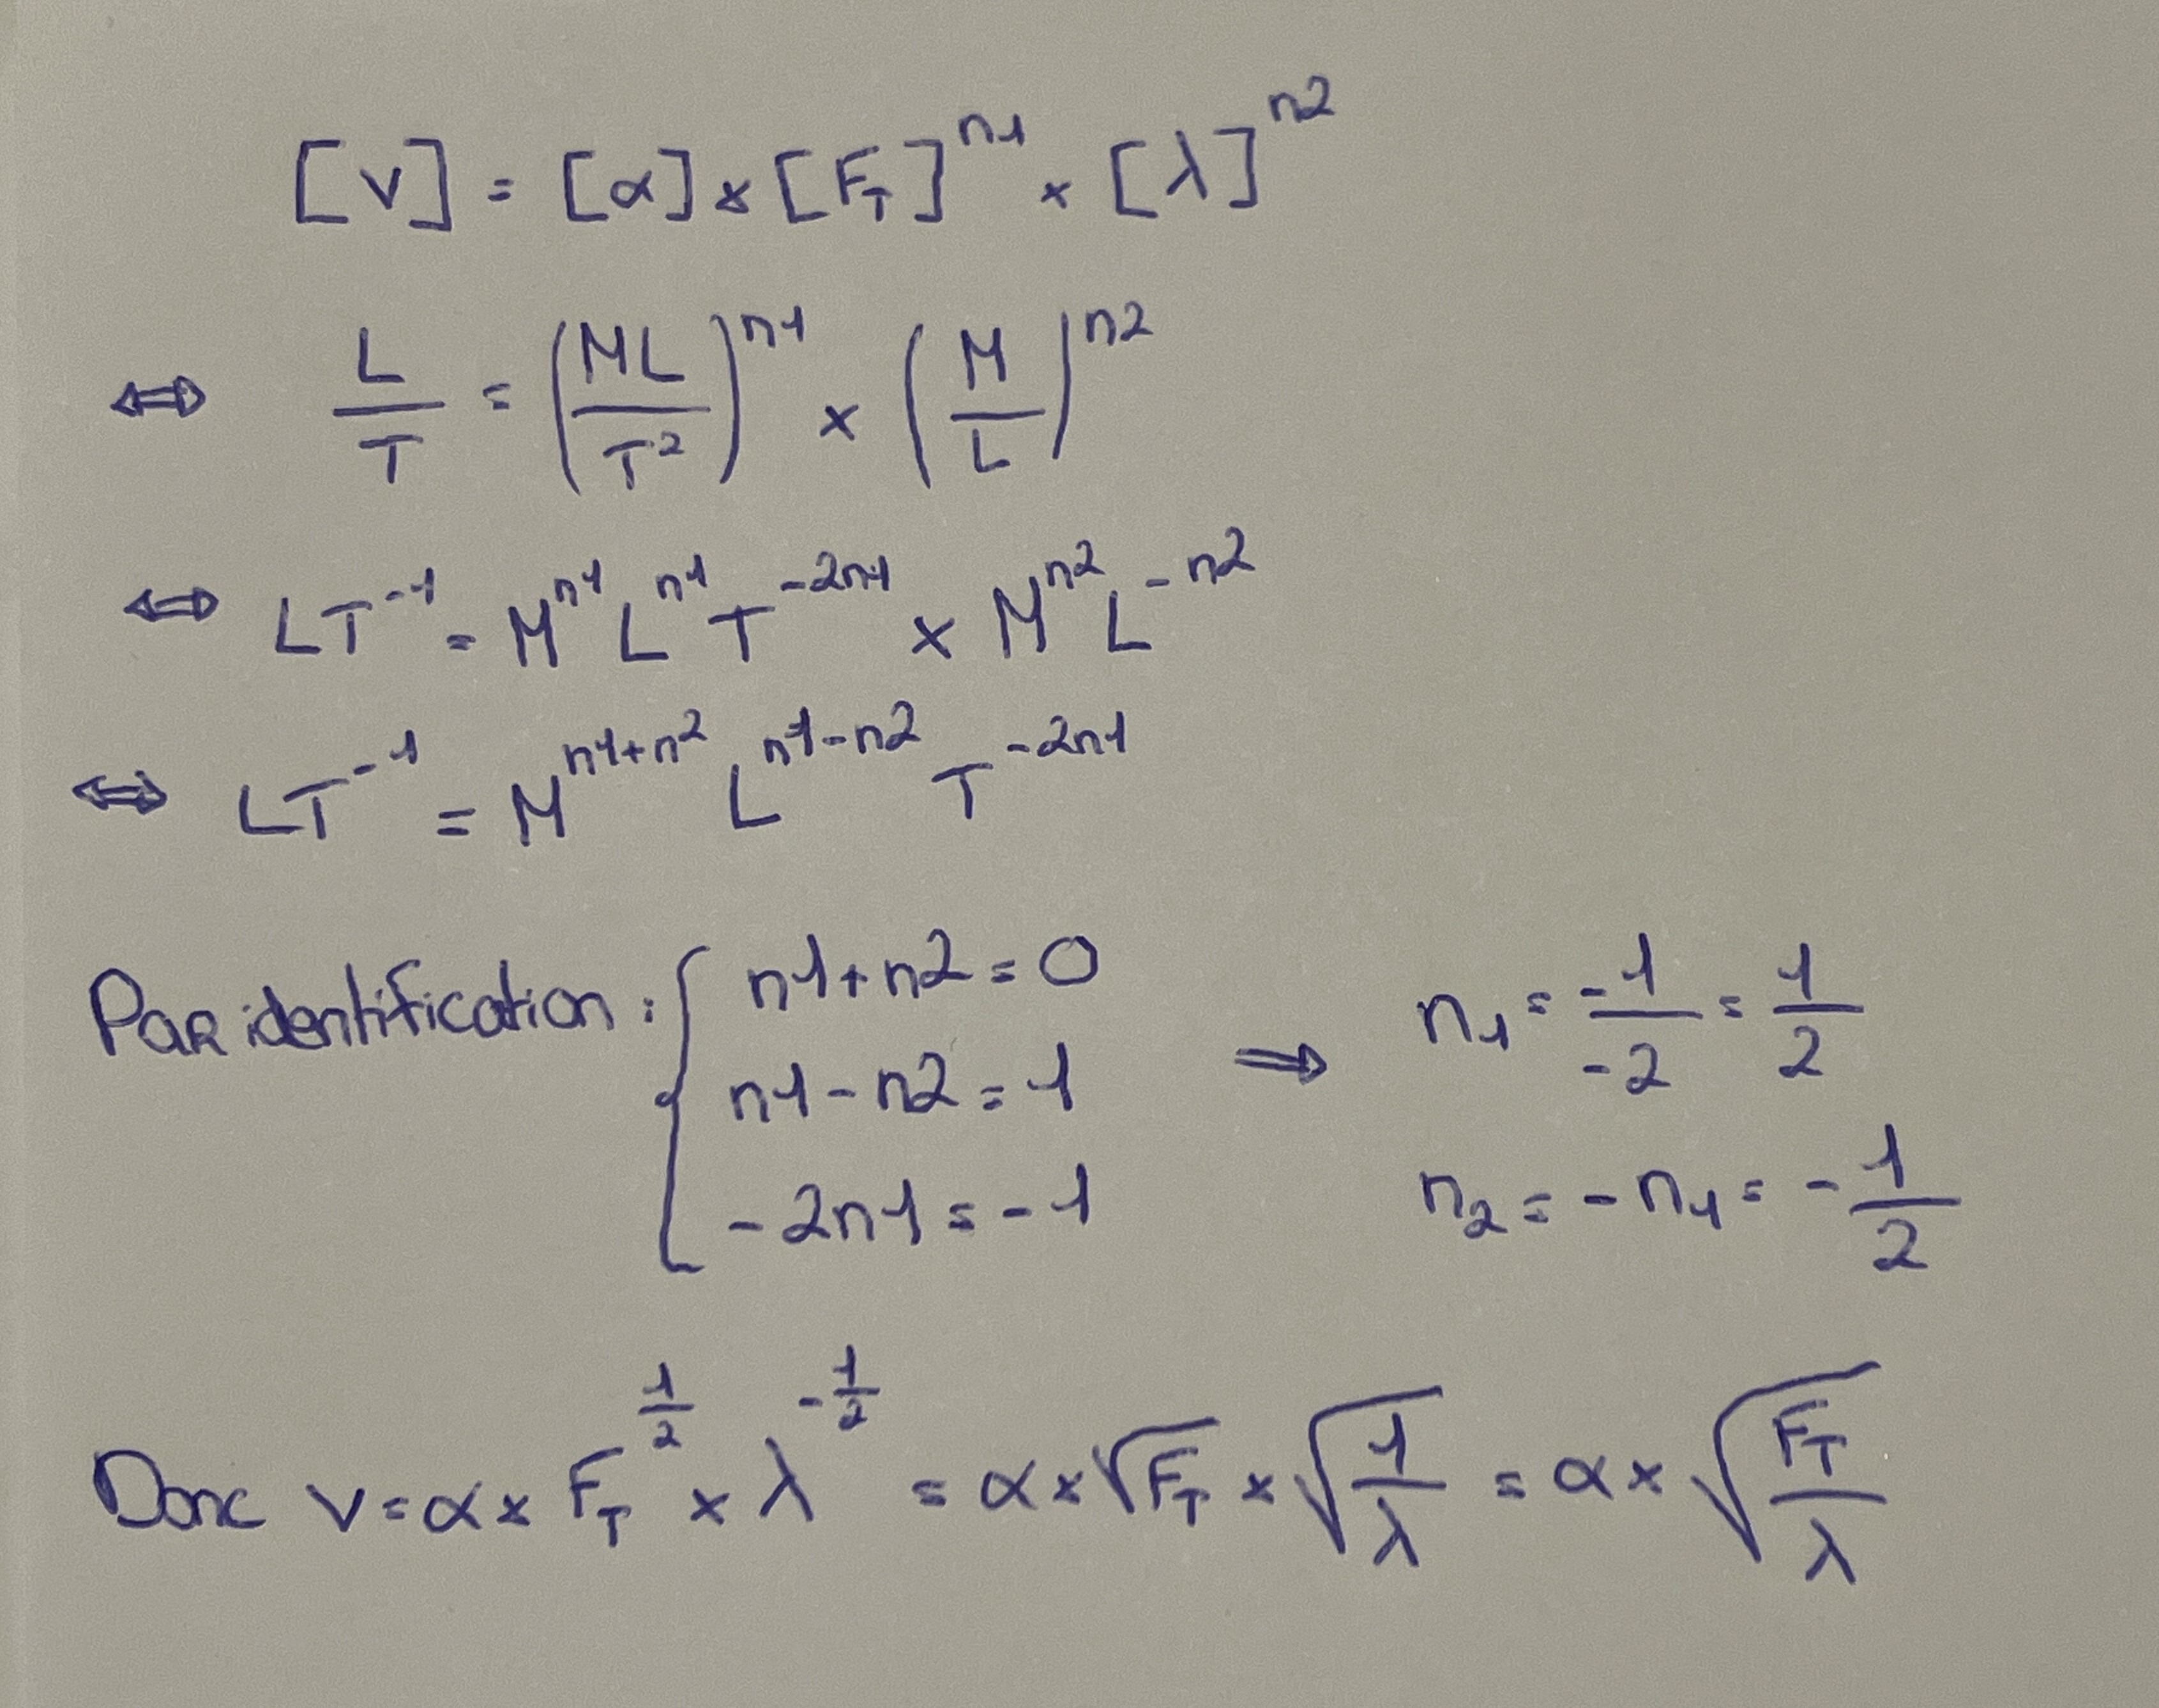 [V] = [α] × [F_T]^n1 × [λ]^n2
⇔ L/T = (ML/T²)^n1 × (M/L)^n2
⇔ LT^-1 = M^n1 L^n1 T^-2n1 × M^n2 L^-n2
⇔ LT^-1 = M^(n1+n2) L^(n1-n2) T^-2n1
Par identification : { n1+n2 = 0
n1-n2 = 1
-2n1 = -1
⇒ n₁ = -1/-2 = 1/2
n₂ = -n₁ = -1/2
Donc V = α × F_T^(1/2) × λ^(-1/2) = α × √F_T × √(1/λ) = α × √(F_T/λ)